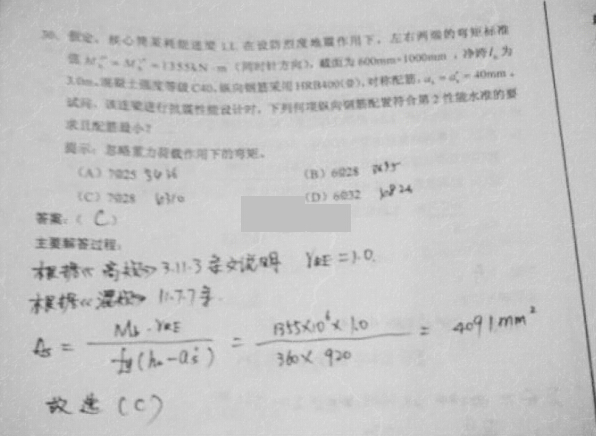 30、假定，核心筒某耗能连梁 LL 在设防烈度地震作用下，左右两端的弯矩标准
值 =1355kN·m（同时针方向），截面为 600mm×1000mm，净跨 lₙ 为
3.0m，混凝土强度等级 C40，纵向钢筋采用 HRB400(Φ)，对称配筋，aₛ=aₛ'=40mm。
试问，该连梁进行抗震性能设计时，下列何项纵向钢筋配置符合第 2 性能水准的要
求且配筋最小？
提示：忽略重力荷载作用下的弯矩。
（A）7Φ25 3436 （B）6Φ28
（C）7Φ28 4310 （D）6Φ32 4826
答案：（ C ）
主要解答过程：
根据《高规》3.11.3条文说明 γRE =1.0.
根据《混规》11.7.7条.
As = Mb·γRE / fy(h₀-as') = 1355×10⁶×1.0 / 360×920 = 4091mm²
故选（C）